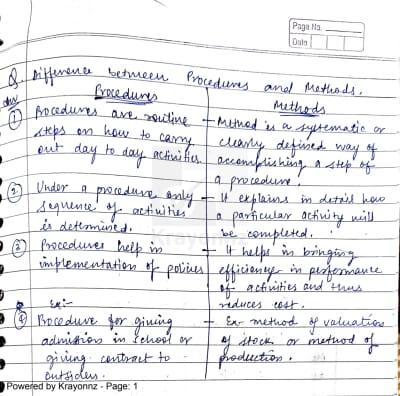 Page No.
Date
Q. Difference between Procedures and Methods.
Ans
Procedures
Methods
① Procedures are routine
steps on how to carry
out day to day activities
- Method is a systematic or
clearly defined way of
accomplishing a step of
a procedure.
② Under a procedure only
sequence of activities
is determined.
- It explains in detail how
a particular activity will
be completed.
③ Procedures help in
implementation of policies
- It helps in bringing
efficiency in performance
of activities and thus
reduces cost.
Ex:-
④ Procedure for giving
admission in school or
giving contract to
outsiders.
- Ex- method of valuation
of stock or method of
production.
Krayonnz
Powered by Krayonnz - Page: 1